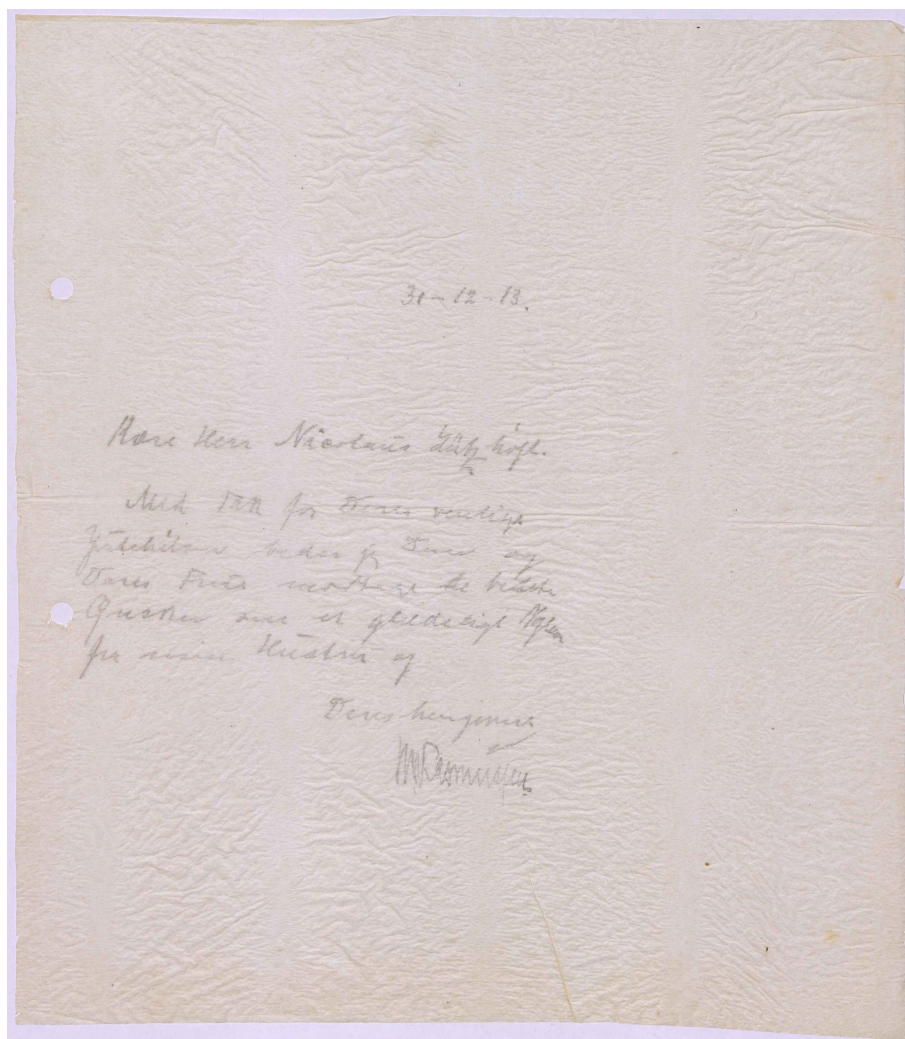 30-12-13.
Kære Herr Nicolaus Lützhøft.
Med Tak for Deres venlige
Julehilsen beder jeg Dem og
Deres Frue modtage de bedste
Ønsker om et glædeligt Nytaar
fra min Hustru og
Deres hengivne
MRasmussen